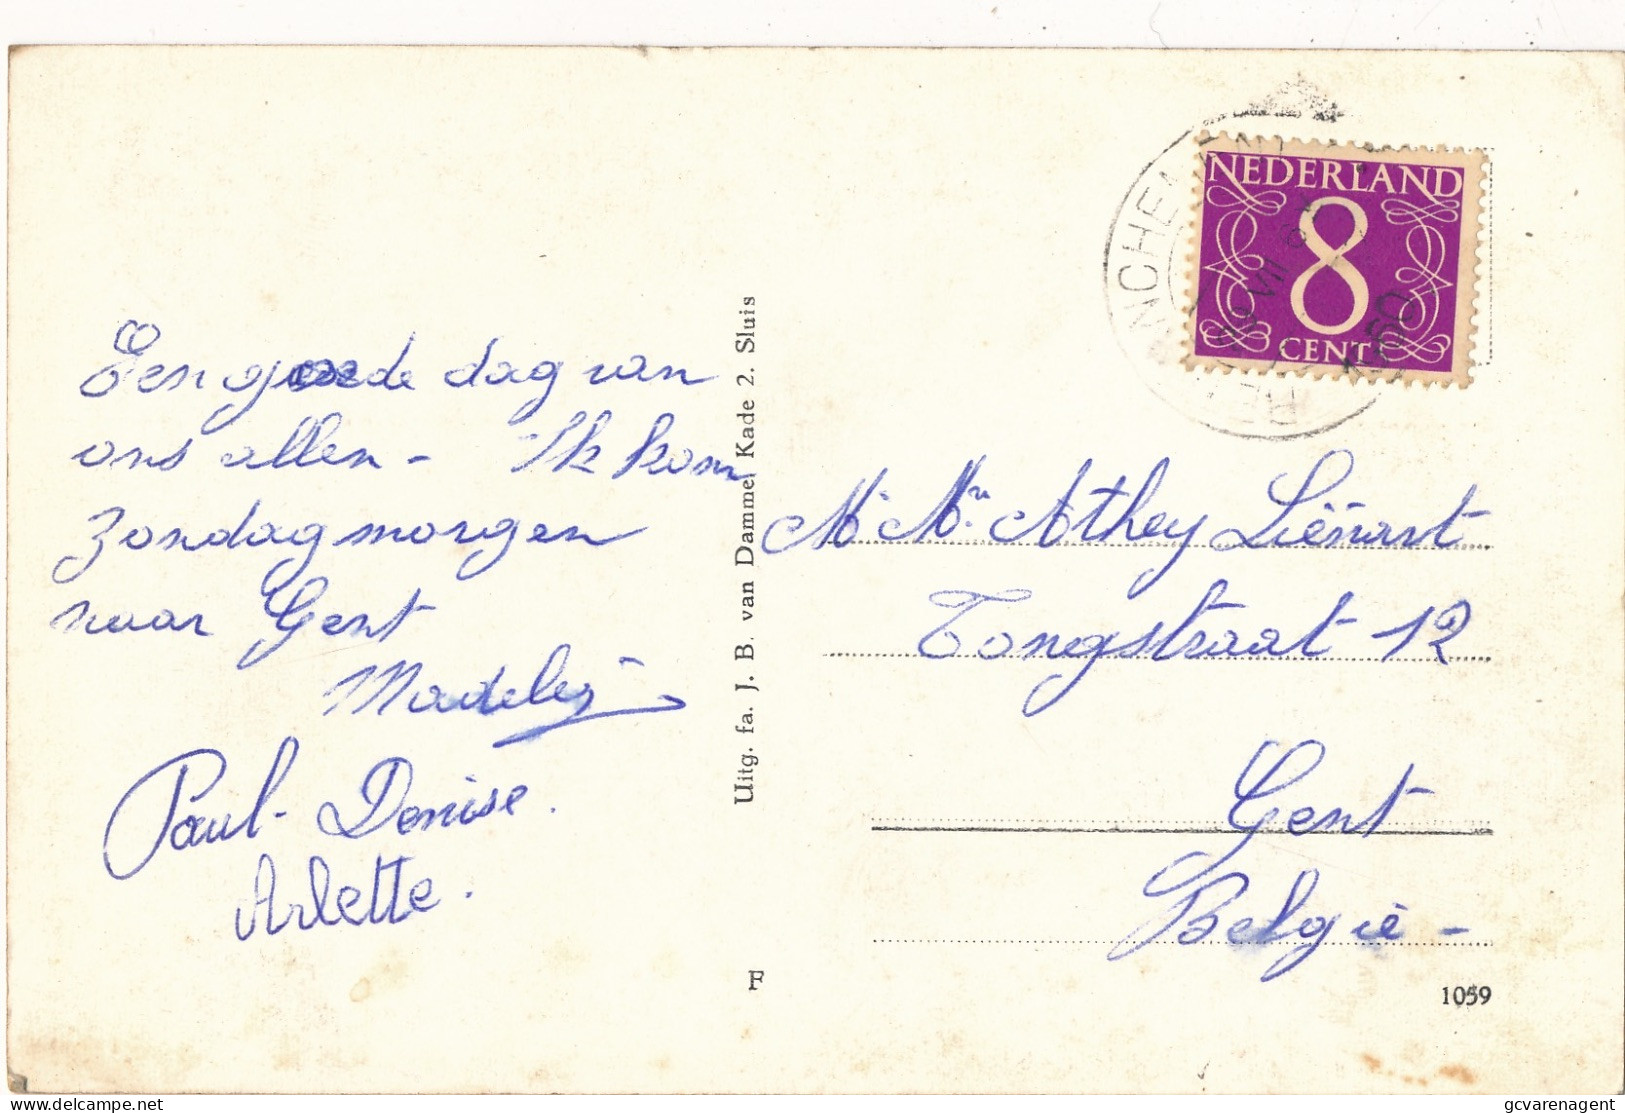 Een goede dag van
ons allen - Ik kom
zondagmorgen
naar Gent
Madeleine
Paul - Denise.
Arlette.
Uitg. fa. J. B. van Damme, Kade 2. Sluis
F
NEDERLAND
8
CENT
VII
1960
Mr Mn. Athey Liénart
Tongstraat 12
Gent
België -
1059
delcampe.net
gcvarenagent